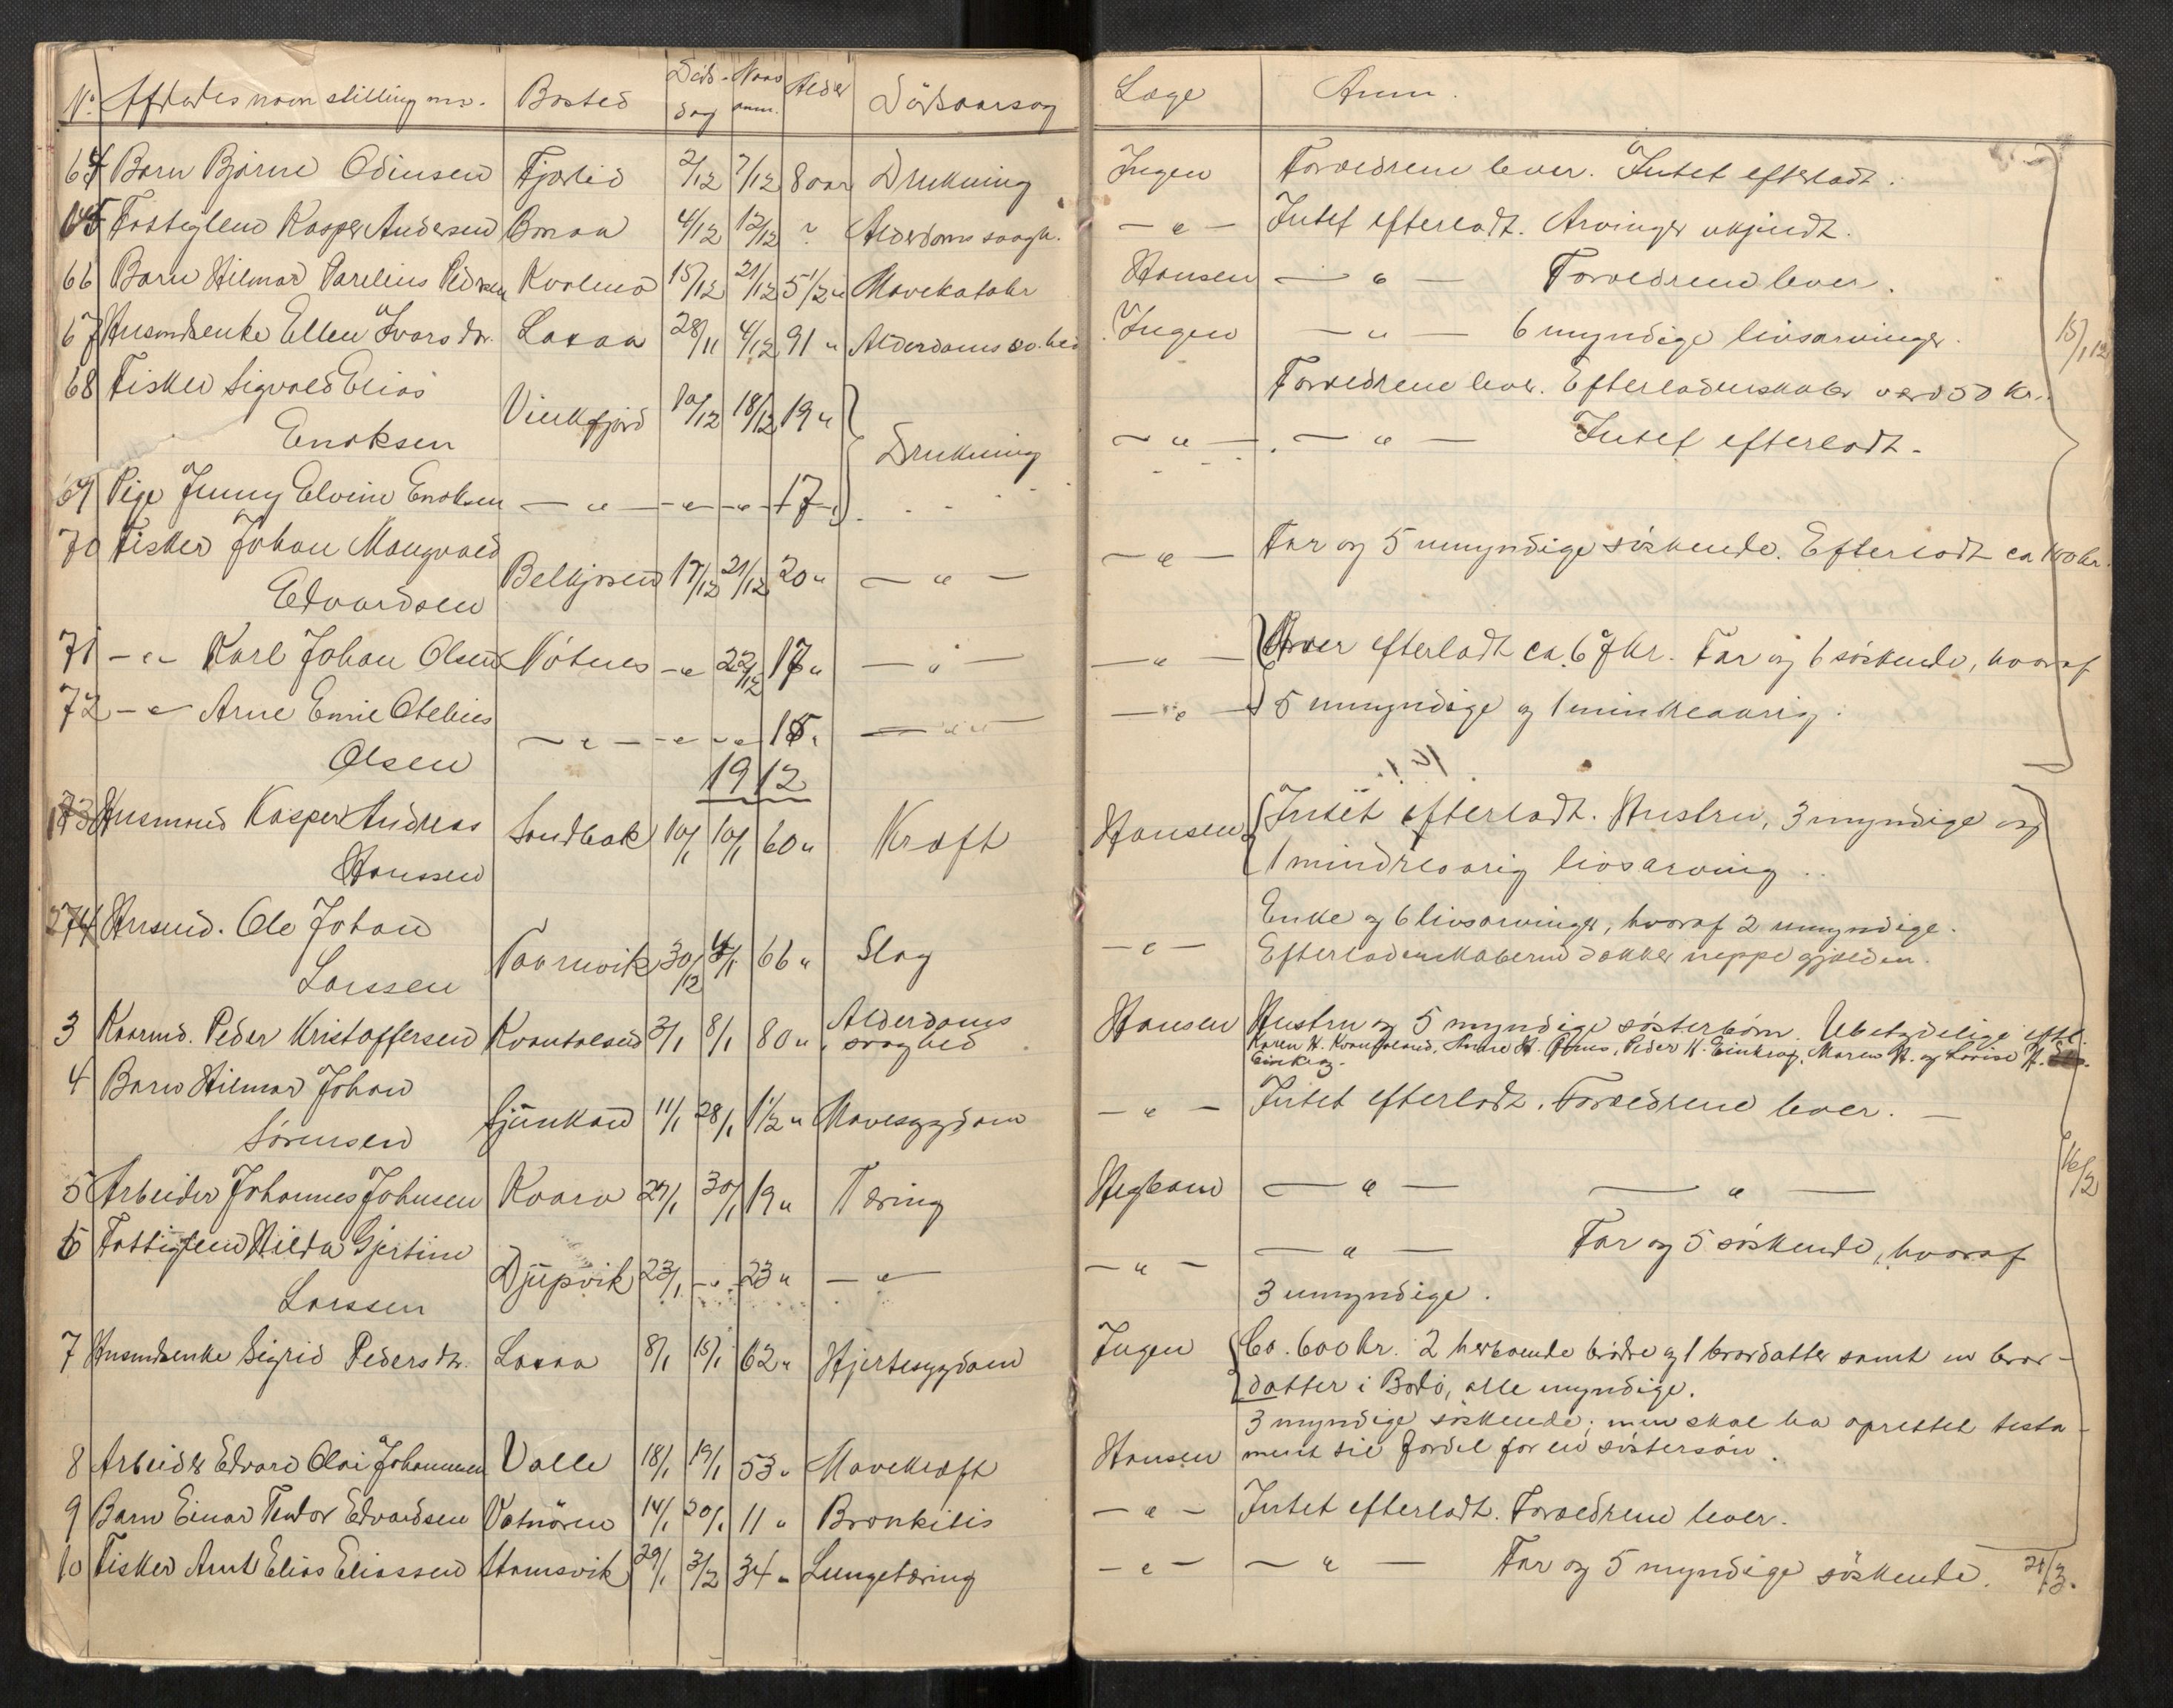 No. Afdødes navn stilling m.v. Bosted Döds- dag Naar anm. Alder Dödsaarsag Læge Anm.
64 Barn Bjarne Odinsen Fjærlid 2/12 7/12 8 aar Drukning Ingen Forældrene lever. Intet efterladt.
65 Fattiglem Kasper Andersen Bonaa 4/12 12/12 ? Alderdomssvagh. — " — Intet efterladt. Arvinger ukjendt.
66 Barn Hilmar Parelius Pedersen Kvalmo 15/12 21/12 5 1/2 " Mavekatahr Hansen — " — Forældrene lever.
67 Husmdsenke Ellen Ivarsdtr. Laxaa 28/11 4/12 91 " Alderdomssv.hed Ingen — " — 6 myndige livsarvinger. 15/1 12
68 Fisker Sigvald Elias
Enoksen Vinkfjord 10/12 18/12 19 " Drukning — " — Forældrene lever. Efterladenskaber værd 50 kr.
69 Pige Jenny Elvine Enoksen — " — — " — — " — 17 — " — — " — Intet efterladt.
70 Fisker Johan Mangvald
Edvardsen Belkjosen 17/12 21/12 20 " — " — — " — Far og 5 umyndige søskende. Efterladt ca 100 kr.
71 — " — Karl Johan Olsen Nötnes — " 22/12 17 " — " — — " — Hver efterladt ca. 67 kr. Far og 6 söskende, hvoraf
72 — " — Arne Emil Otelius
Olsen — " — — " — — " 15 " — " — — " — 5 umyndige og 1 mindreaarig.
1912
1 73 Husmand Kasper Andreas
Hanssen Sandbak 10/1 10/1 60 " Kræft Hansen Intet efterladt. Hustru, 3 myndige og
1 mindreaarig livsarving.
2 74 Husmd. Ole Johan
Larssen Naarnvik 30/12 4/1 66 " Slag — " — Enke og 6 livsarvinger, hvoraf 2 umyndige.
Efterladenskaberne dækker neppe gjælden.
3 Kaarmd. Peder Kristoffersen Kvantoland 3/1 8/1 80 " Alderdoms
svaghed Hansen Hustru og 5 myndige søsterbörn. Ubetydelige eftl.
4 Barn Hilmar Johan
Sörensen Sjunkan 11/1 28/1 1 1/2 " Mavesygdom — " — Intet efterladt. Forældrene lever. —
5 Arbeider Johannes Johnsen Kvarv 27/1 30/1 19 " Tæring Hegbom — " — — " — 16/2
6 Fattiglem Hilda Gjertine
Larssen Djupvik 23/1 — " — 23 " — " — — " — — " — Far og 5 søskende, hvoraf
3 umyndige.
7 Husmdsenke Sigrid Pedersdtr. Laxaa 8/1 15/1 62 " Hjertesygdom Ingen Ca. 600 kr. 2 herboende brödre og 1 brordatter samt en bror-
datter i Bodö, alle myndige.
8 Arbeider Edvard Olai Johannesen Valle 18/1 19/1 53 " Mavekræft Hansen 3 myndige söskende; men skal ha oprettet testa-
ment til fordel for en søstersön.
9 Barn Einar Teodor Edvardsen Vatnören 14/1 20/1 11 " Bronkitis — " — Intet efterladt. Forældrene lever.
10 Fisker Arnt Elias Eliassen Stamsvik 29/1 3/2 34 " Lungetæring — " — — " — Far og 5 myndige söskende. 21/3.